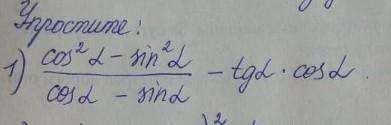 Упростите:
1) (cos²α - sin²α)/(cosα - sinα) - tgα · cosα.
2